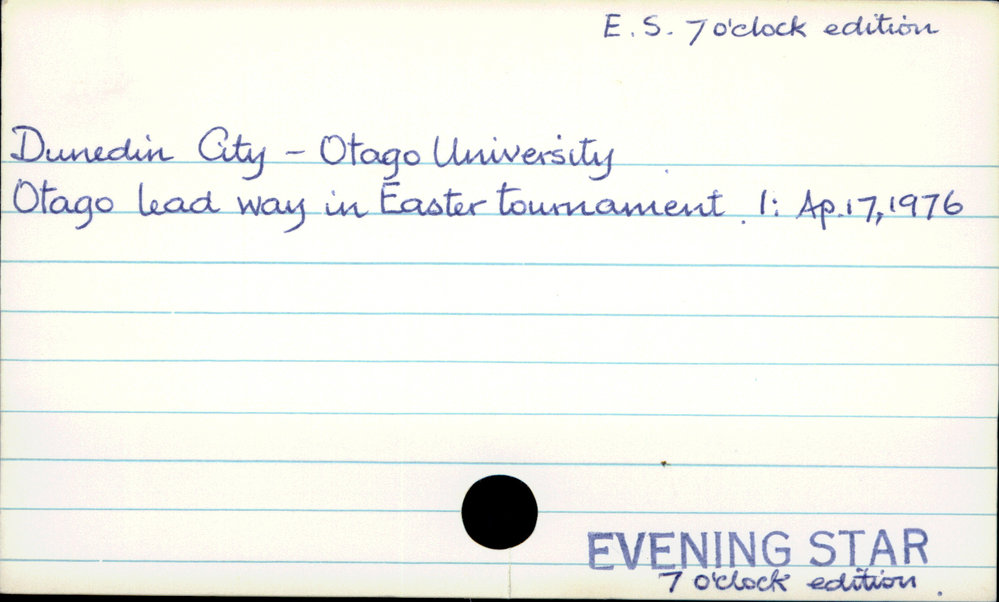 E. S. 7 o'clock edition
Dunedin City - Otago University
Otago lead way in Easter tournament. 1: Ap. 17, 1976
EVENING STAR
7 o'clock edition.